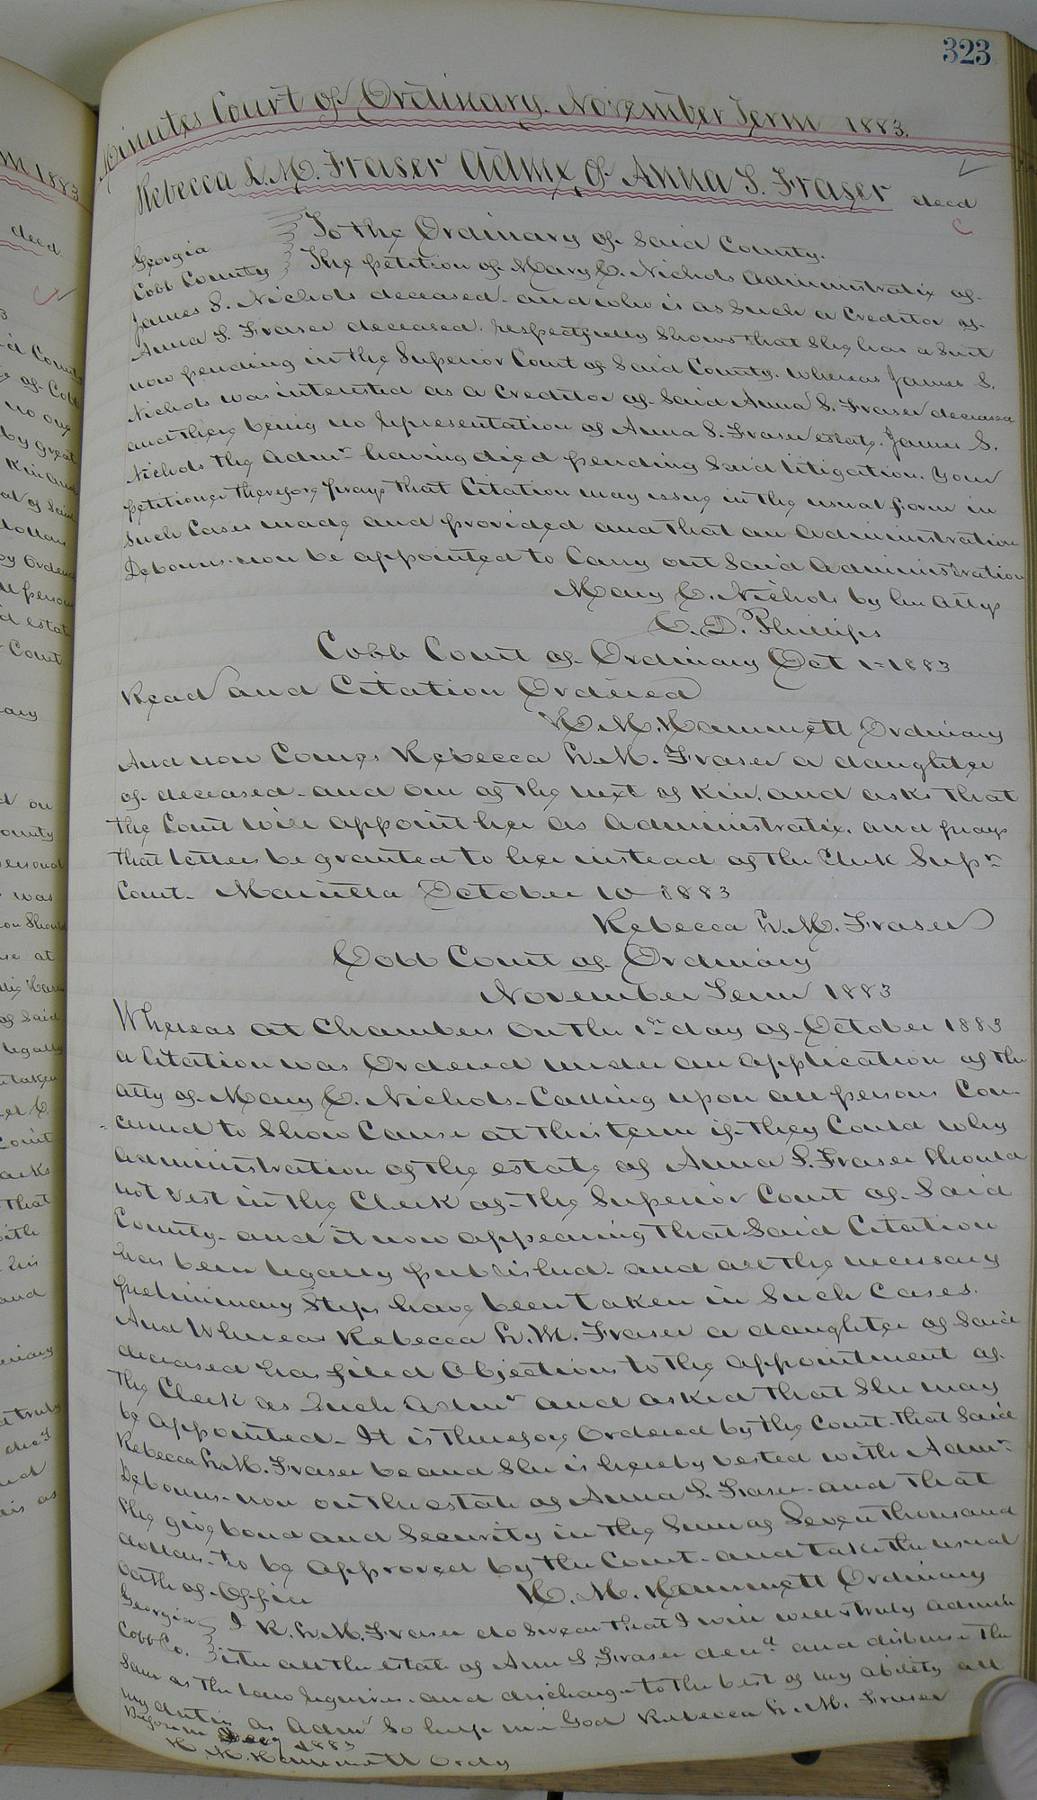 323
Minutes Court of Ordinary. November Term 1883.
Rebecca L. M. Fraser Admx of Anna S. Fraser deced
Georgia
Cobb County
To the Ordinary of Said County.
The petition of Mary E. Nichols Administratix of
James S. Nichols deceased and who is as Such a Creditor of
Anna S. Fraser deceased. respectfully Shows that She has a Suit
now pending in the Superior Court of Said County. whereas James S.
Nichols was interested as a Creditor of Said Anna S. Fraser deceased
and there being no representation of Anna S. Fraser estate. James S.
Nichols the Admr having died pending Said litigation. Your
petitioner therefore prays that Citation may issue in the usual form in
Such Cases made and provided and that an Administration
Debonus non be appointed to Carry out Said Administration
Mary E. Nichols by her attys
C. D. Phillips
Cobb Court of Ordinary Oct 1 - 1883
Read and Citation Ordered
H. M. Hammett Ordinary
And now Comes Rebecca L. M. Fraser a daughter
of deceased and one of the next of Kin, and asks that
the Court will appoint her as Administratix. and prays
that letters be granted to her instead of the Clerk Supr
Court. Marietta October 10 1883
Rebecca L. M. Fraser
Cobb Court of Ordinary
November Term 1883
Whereas at Chambers on the 1st day of October 1883
a Citation was Ordered under an application of the
atty of Mary E. Nichols - Calling upon all persons Con-
cerned to Show Cause at this term if they Could why
Administration of the estate of Anna S. Fraser Should
not vest in the Clerk of the Superior Court of Said
County - and it now appearing that Said Citation
has been legally published and all the necessary
preliminary Steps have been taken in Such Cases.
And Whereas Rebecca L. M. Fraser a daughter of Said
deceased has filed Objections to the appointment of
the Clerk as Such Admr and asked that She may
be appointed - It is therefore Ordered by the Court that Said
Rebecca L. M. Fraser be and She is hereby vested with Admn
Debonus-non on the estate of Anna S. Fraser and that
She give bond and Security in the Sum of Seven thousand
dollars to be approved by the Court and take the usual
Oath of Office
H. M. Hammett Ordinary
Georgia
Cobb Co.
I R. L. M. Fraser do Swear that I will well & truly admin
ister all the estate of Ann S. Fraser decd and disburse the
Same as the law requires. and discharge to the best of my ability all
my duties as Admr So help me God Rebecca L. M. Fraser
Before me 1883
H. M. Hammett Ordy